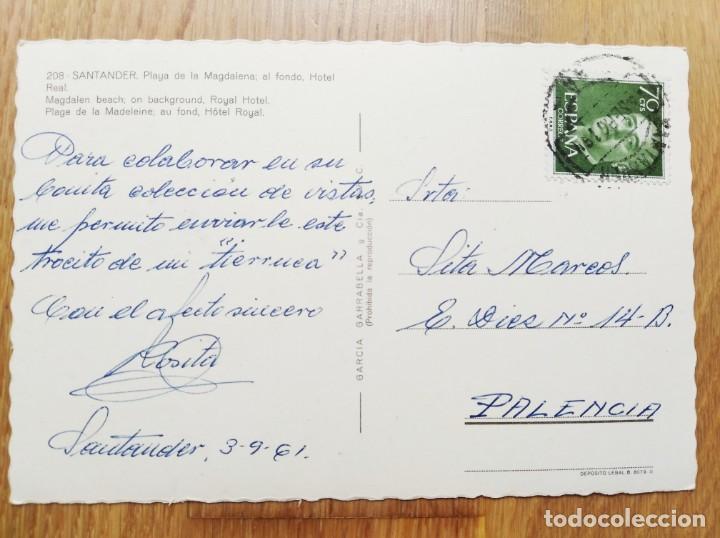 208 - SANTANDER. Playa de la Magdalena; al fondo, Hotel
Real.
Magdalen beach; on background, Royal Hotel.
Plage de la Madeleine; au fond, Hôtel Royal.
Para colaborar en su
bonita colección de vistas,
me permito enviarle este
trocito de mi "tierruca"
Con el afecto sincero
Rosita
Santander, 3-9-61.
GARCIA GARRABELLA y Cia. S. C.
(Prohibida la reproducción)
70
CTS
ESPAÑA
CORREOS
Srta:
Sita Marcos.
E. Diez Nº 14-B.
PALENCIA
DEPOSITO LEGAL B. 8079-II
todocoleccion
todocoleccion.net